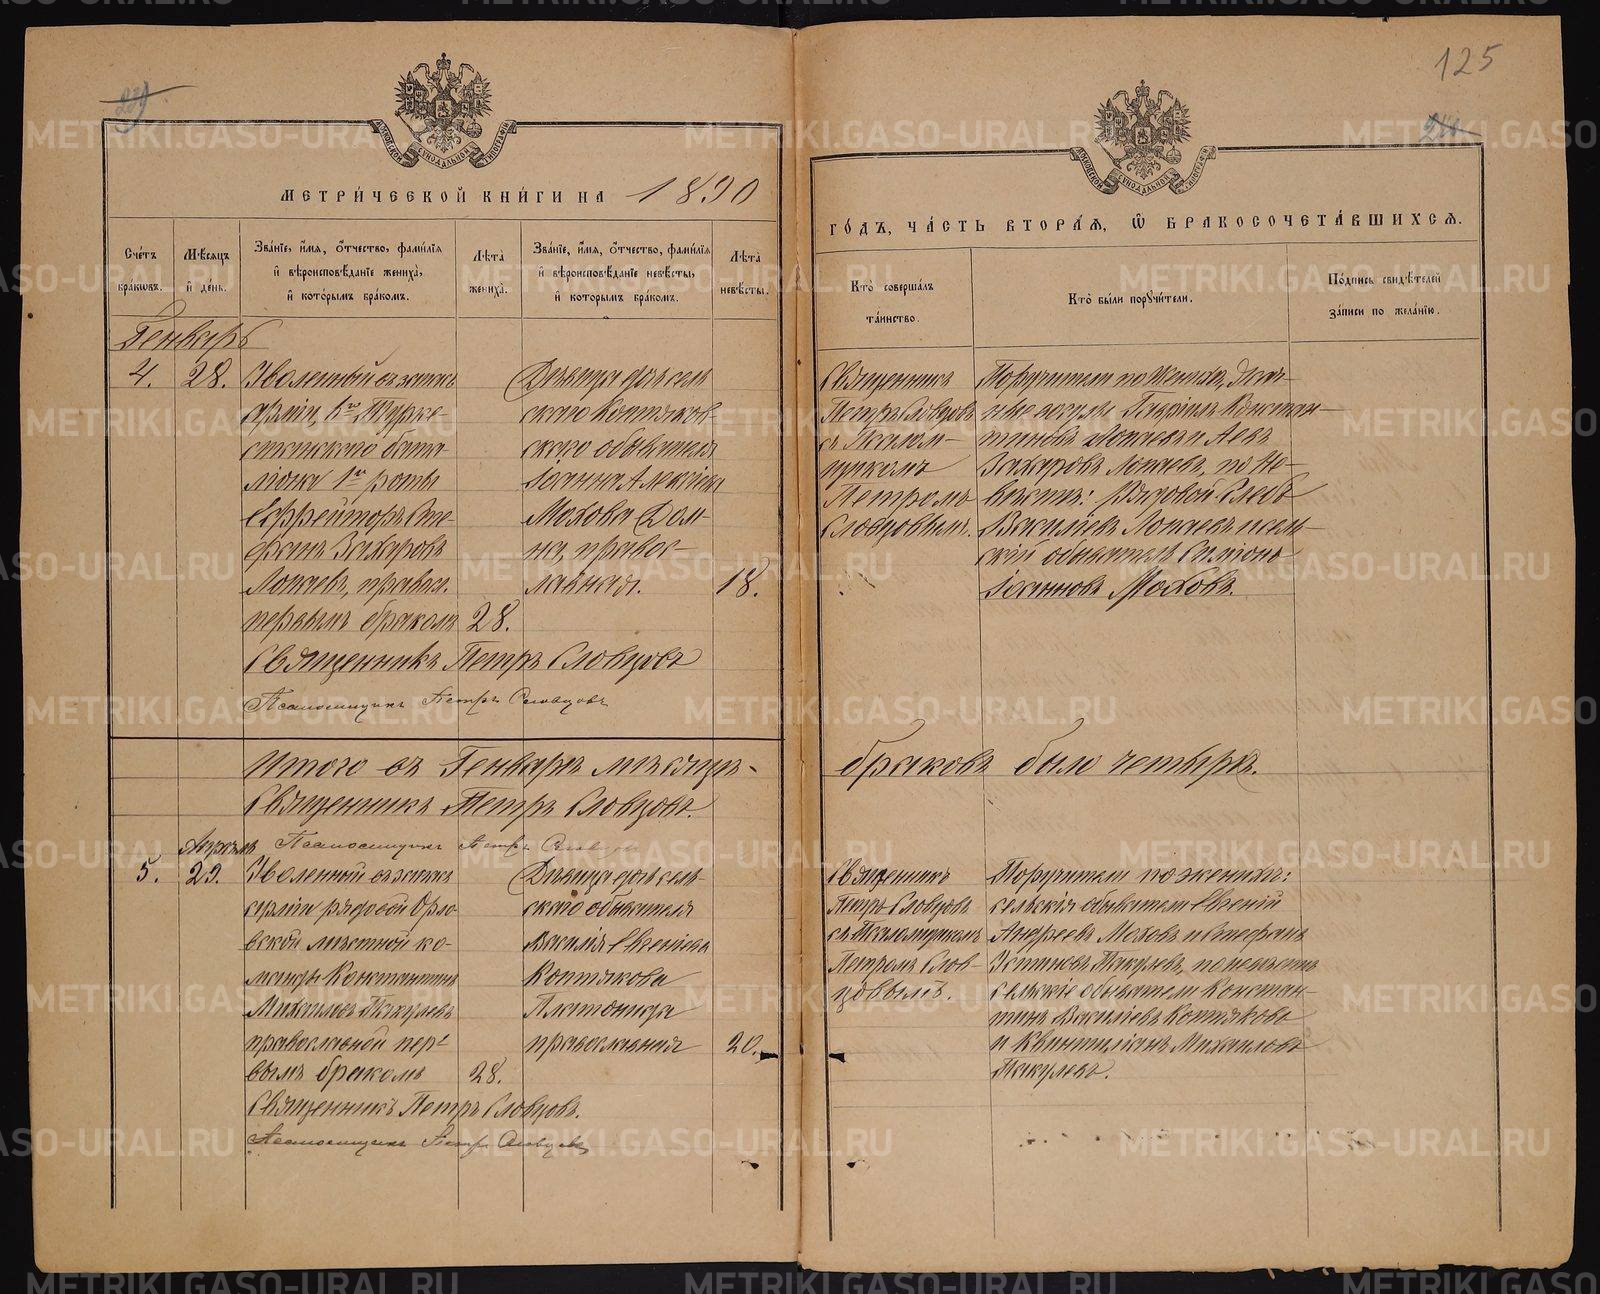 125
239
МОСКОВСКОЙ СѴНОДАЛЬНОЙ ТИПОГРАФІИ
МОСКОВСКОЙ СѴНОДАЛЬНОЙ ТИПОГРАФІИ
МЕТРИ́ЧЕСКОЙ КНИ́ГИ НА 1890
ГО́ДЪ, ЧА́СТЬ ВТОРА́Ѧ, Ѽ БРАКОСОЧЕТА́ВШИХСѦ.
Сче́тъ бра́ковъ.
Мѣ́сяцъ и҆ де́нь.
Зва́нїе, и҆́мя, ѻ҆́тчество, фами́лїя и҆ вѣроисповѣ́данїе жениха̀, и҆ кото́рымъ бра́комъ.
Лѣта̀ жениха̀.
Зва́нїе, и҆́мя, ѻ҆́тчество, фами́лїя и҆ вѣроисповѣ́данїе невѣ́сты, и҆ кото́рымъ бра́комъ.
Лѣта̀ невѣ́сты.
Кто̀ соверша́лъ та́инство.
Кто̀ бы́ли пορꙋчи́тели.
По́дпись свидѣ́телей за́писи по жела́нїю.
Генварь
4.
28.
Уволенный въ запасъ
арміи, 1го Турке-
станскаго бата-
ліона 1й роты
Ефрейторъ Сте-
фанъ Захаровъ
Лопаевъ, правосл.
первымъ бракомъ
28.
Дѣвица дочь сель
скаго Коптяков-
скаго обывателя
Іоанна Алексіева
Мохова Дом-
на, правос-
лавная.
18.
Священникъ
Петръ Словцовъ
съ Псалом-
щикомъ
Петромъ
Словцовымъ.
Поручители по женихѣ,
Гавріилъ Констан-
тиновъ Лопаевъ и
Захаровъ Лопаевъ, по Не-
вѣстѣ: рядовой Глебъ
Василіевъ Лопаевъ и сель-
скій обыватель Симеонъ
Іоанновъ Моховъ.
Священникъ Петръ Словцовъ
Псаломщикъ Петръ Словцовъ
Итого въ Генварѣ мѣсяцѣ-
браковъ было четыре.
Священникъ Петръ Словцовъ.
Псаломщикъ Петръ Словцовъ
Апрѣль
5.
29.
Уволенный въ запасъ
арміи рядовой Орло-
вской мѣстной ко-
манды Константинъ
Михаиловъ Пакулевъ
православной пер-
вымъ бракомъ
28.
Дѣвица дочь сель-
скаго обывателя
Василія Евгеніева
Коптякова
Платонида
православная
20.
Священникъ
Петръ Словцовъ
съ Псаломщикомъ
Петромъ Слов-
цовымъ.
Поручители по женихѣ:
сельскія обыватели Евгеній
Андреевъ Моховъ и Стефанъ
Устиновъ Пакулевъ, по невѣстѣ
сельскіе обыватели Констан-
тинъ Василіевъ Коптяковъ
и Квинтиліанъ Михаиловъ
Пакулевъ.
Священникъ Петръ Словцовъ.
Псаломщикъ Петръ Словцовъ
METRIKI.GASO-URAL.RU